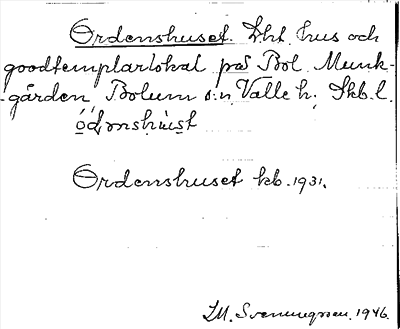 Ordenshuset. Lht. hus och
goodtemplarlokal på Bol. Munk-
-gården, Bolum s:n, Valle h., Skb. l.
ó̱d̯ɔnshùu̱st
Ordenshuset kb. 1931.
I.M. Svenungsson. 1946.